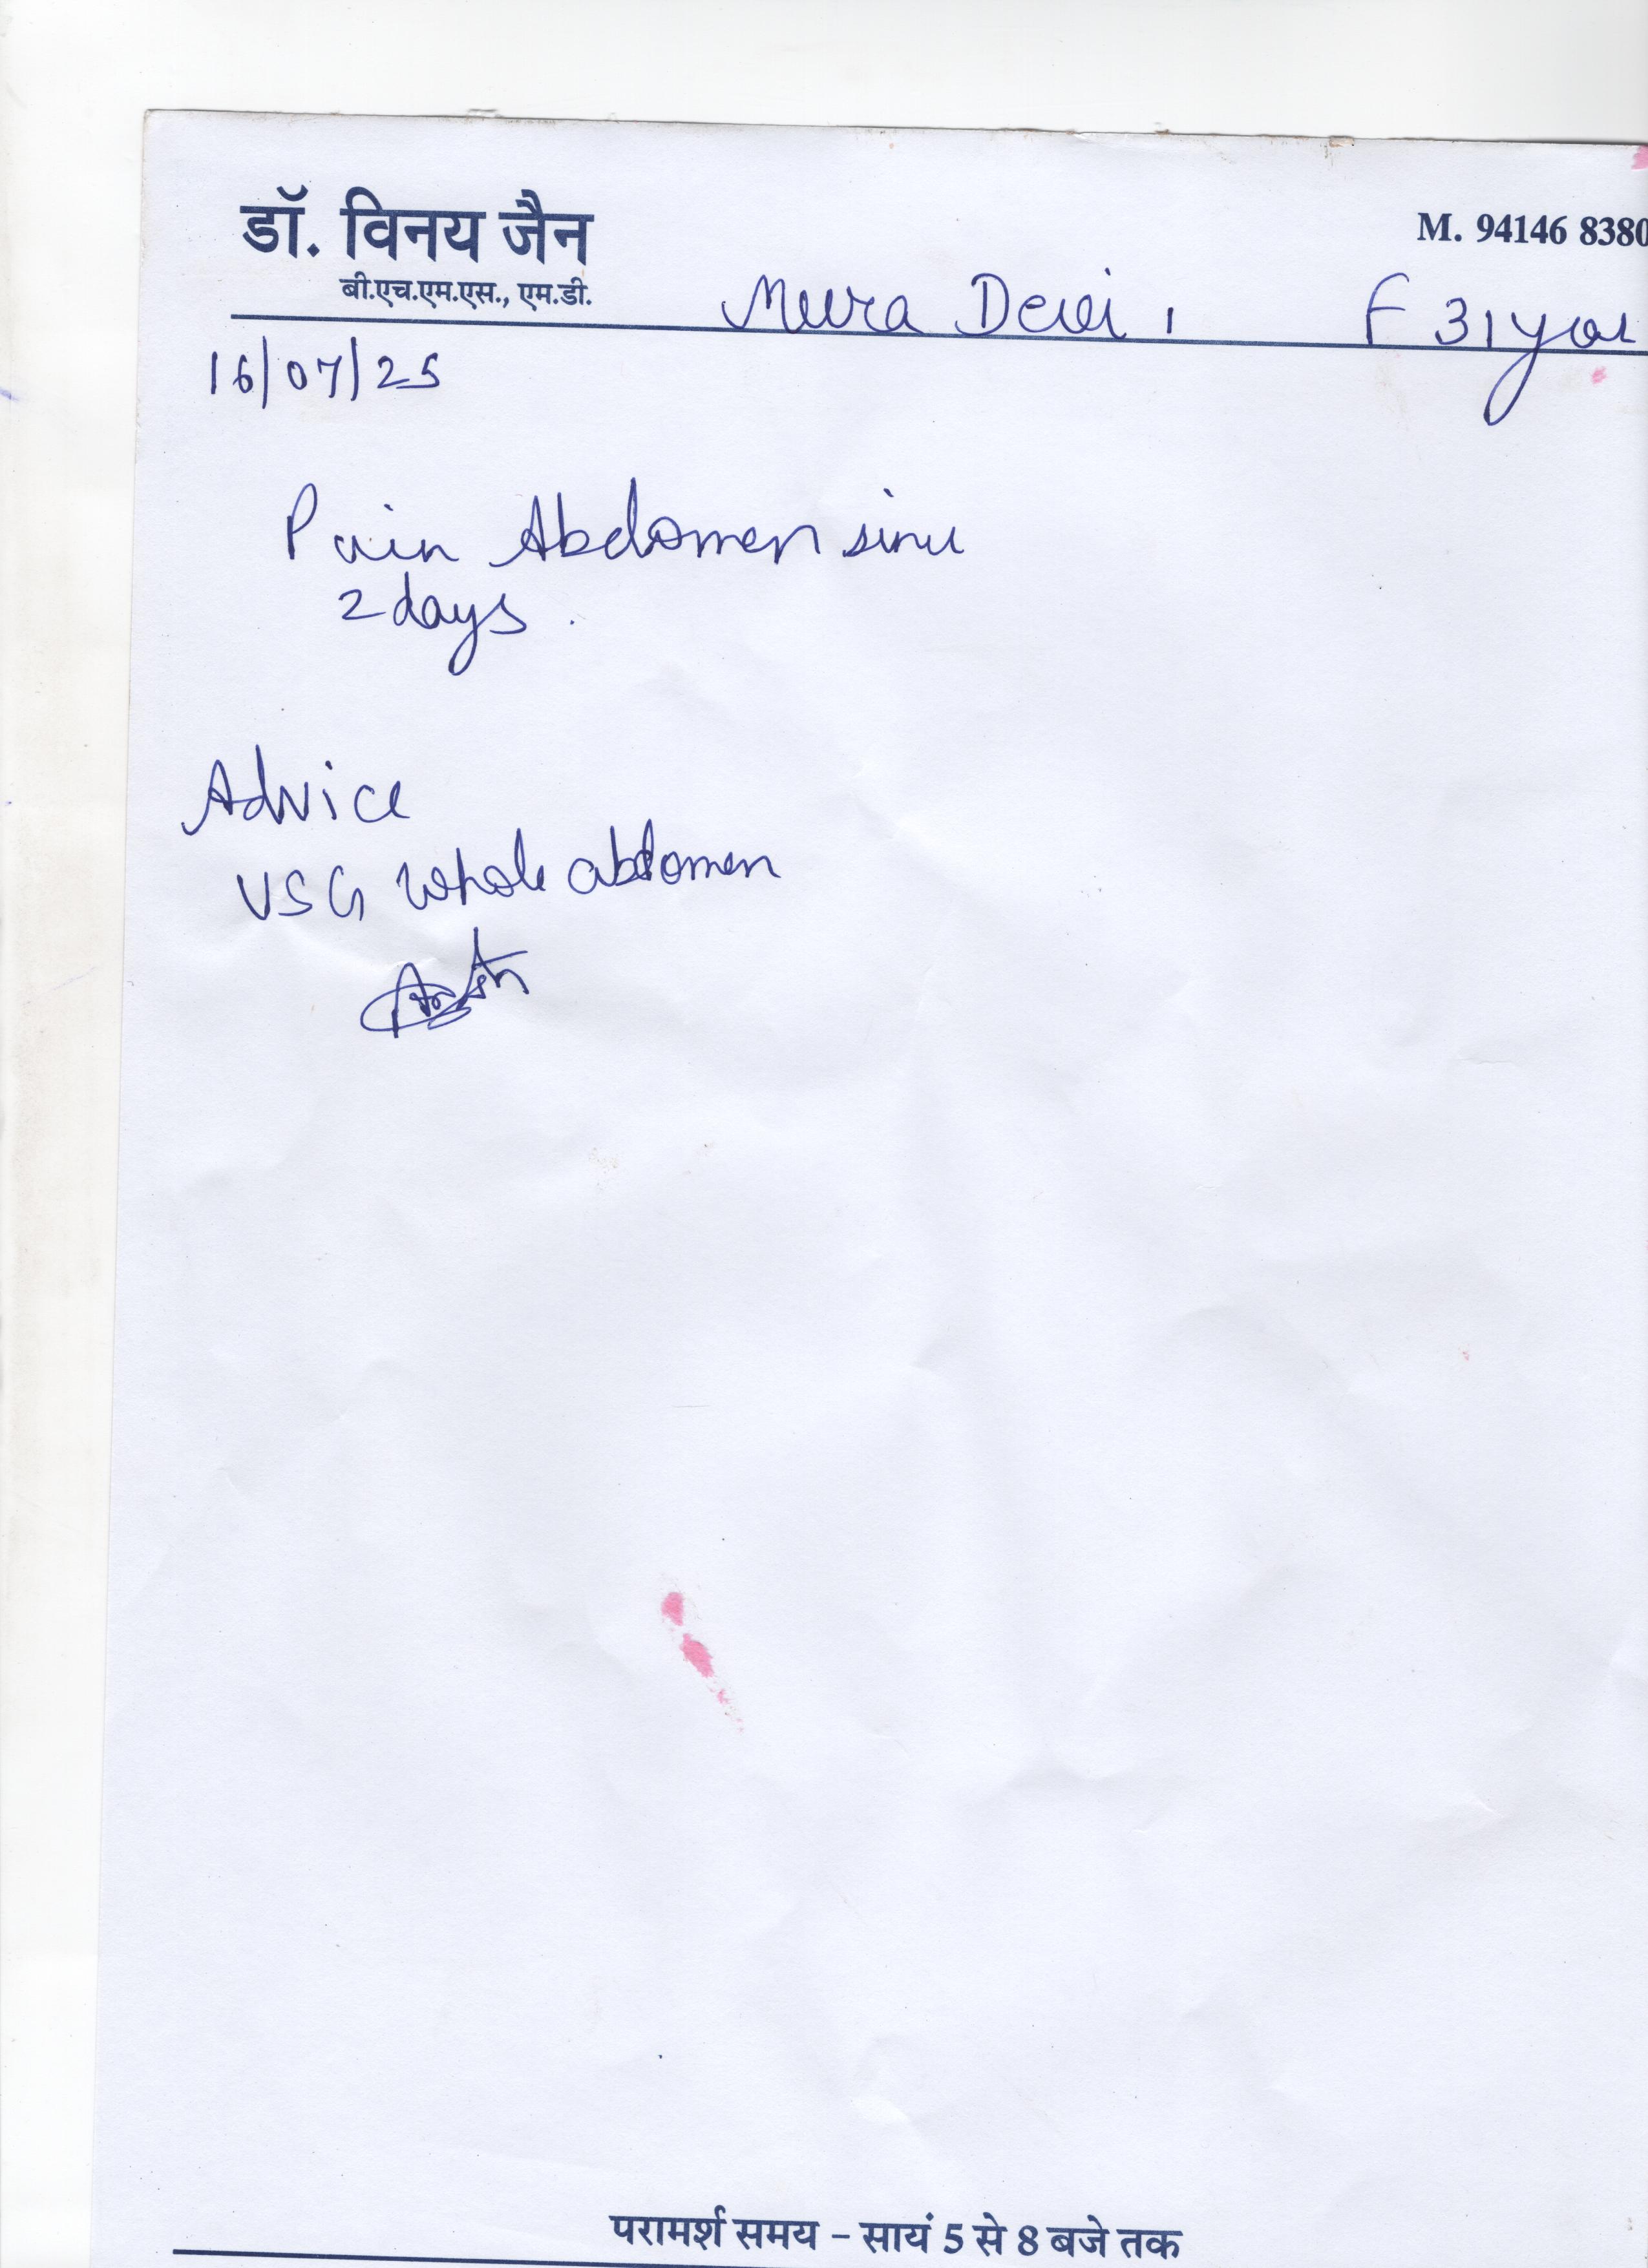 डॉ. विनय जैन
M. 94146 8380
बी.एच.एम.एस., एम.डी.
Meera Devi, F 31 year
16/07/25
Pain Abdomen since
2 days.
Advice
USG whole abdomen
परामर्श समय - सायं 5 से 8 बजे तक